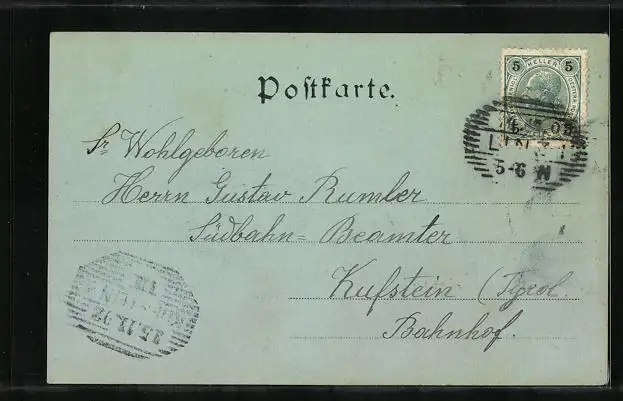 Postkarte.
5 HELLER 5
LINZ
5-6 N
Sr Wohlgeboren
Herrn Gustav Rumler
Südbahn-Beamter
Kufstein (Tyrol.
Bahnhof.
KUFSTEIN